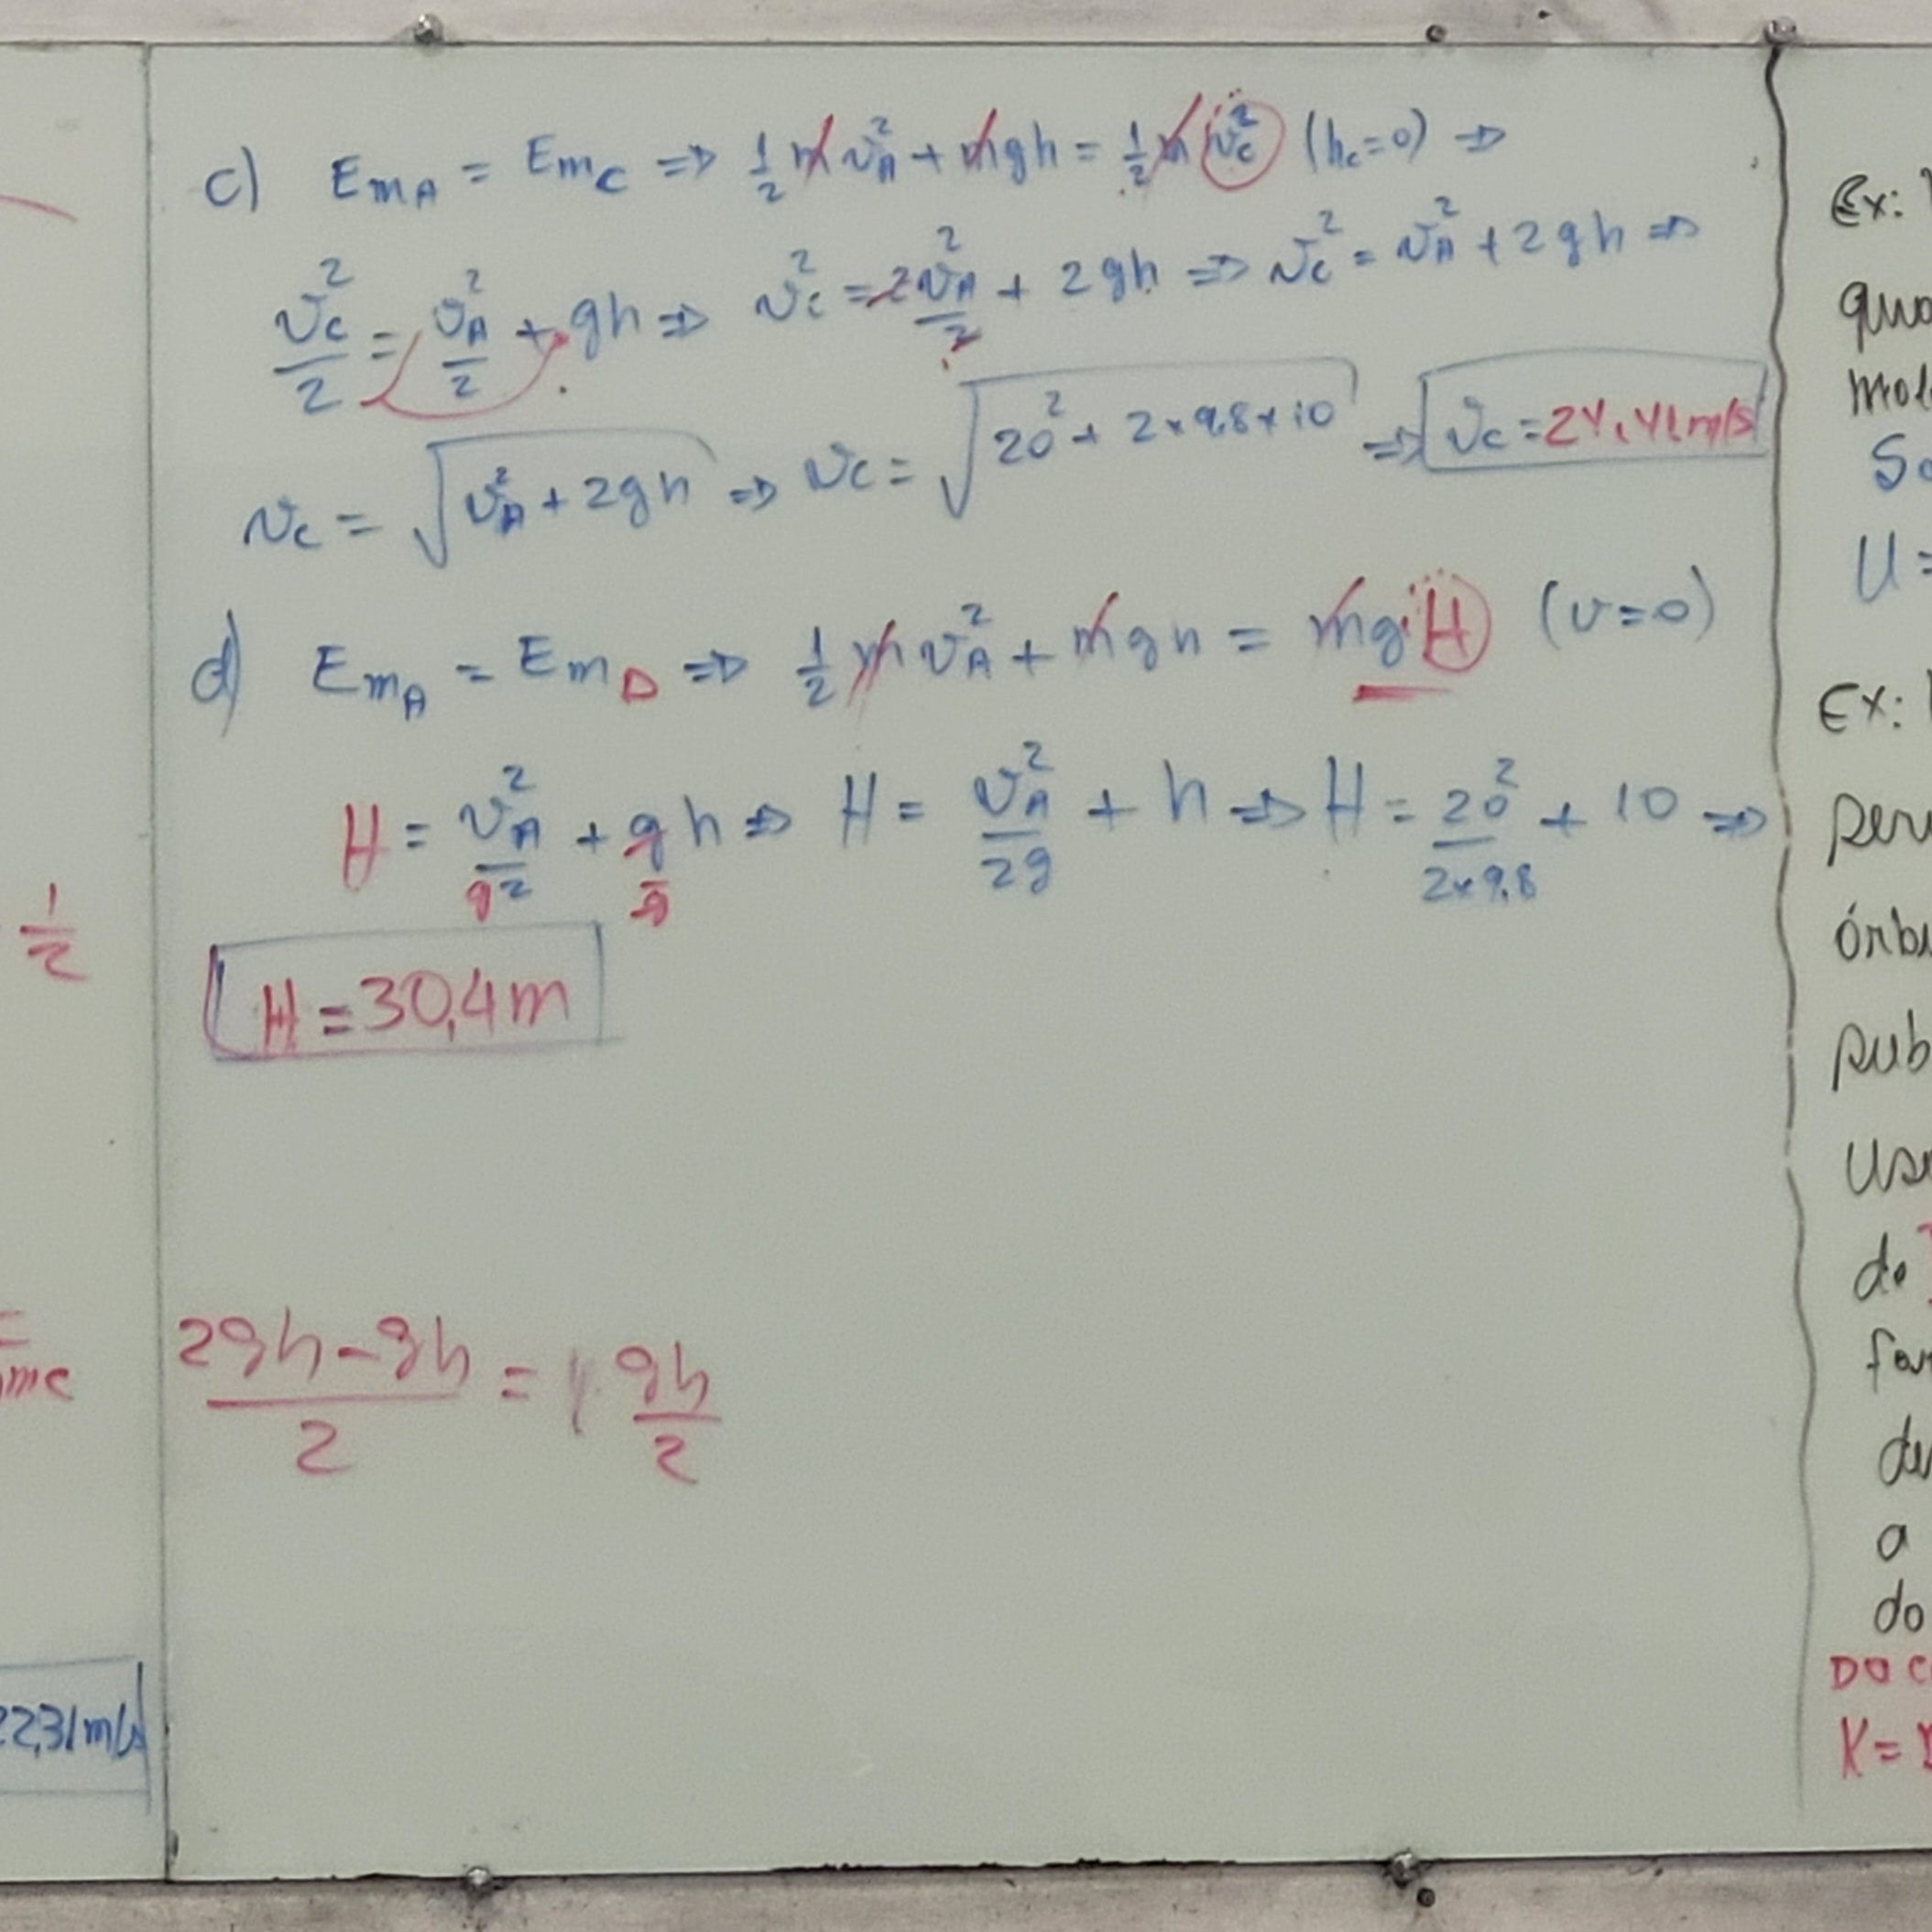 c) E_mA = E_mC ⇒ 1/2 m v_A² + m g h = 1/2 m v_C² (h_c=0) ⇒
v_C²/2 = v_A²/2 + gh ⇒ v_C² = 2v_A²/2 + 2gh ⇒ v_C² = v_A² + 2gh ⇒
v_C = √(v_A² + 2gh) ⇒ v_C = √(20² + 2×9,8×10) ⇒ v_C = 24,41 m/s
d) E_mA = E_mD ⇒ 1/2 m v_A² + m g h = m g H (v=0)
H = v_A²/g2 + gh/g ⇒ H = v_A²/2g + h ⇒ H = 20²/2×9,8 + 10 ⇒
H = 30,4m
(2gh - gh)/2 = gh/2
1/2
mc
22,31m/s
Ex:
U =
Ex:
do
a
do
K =